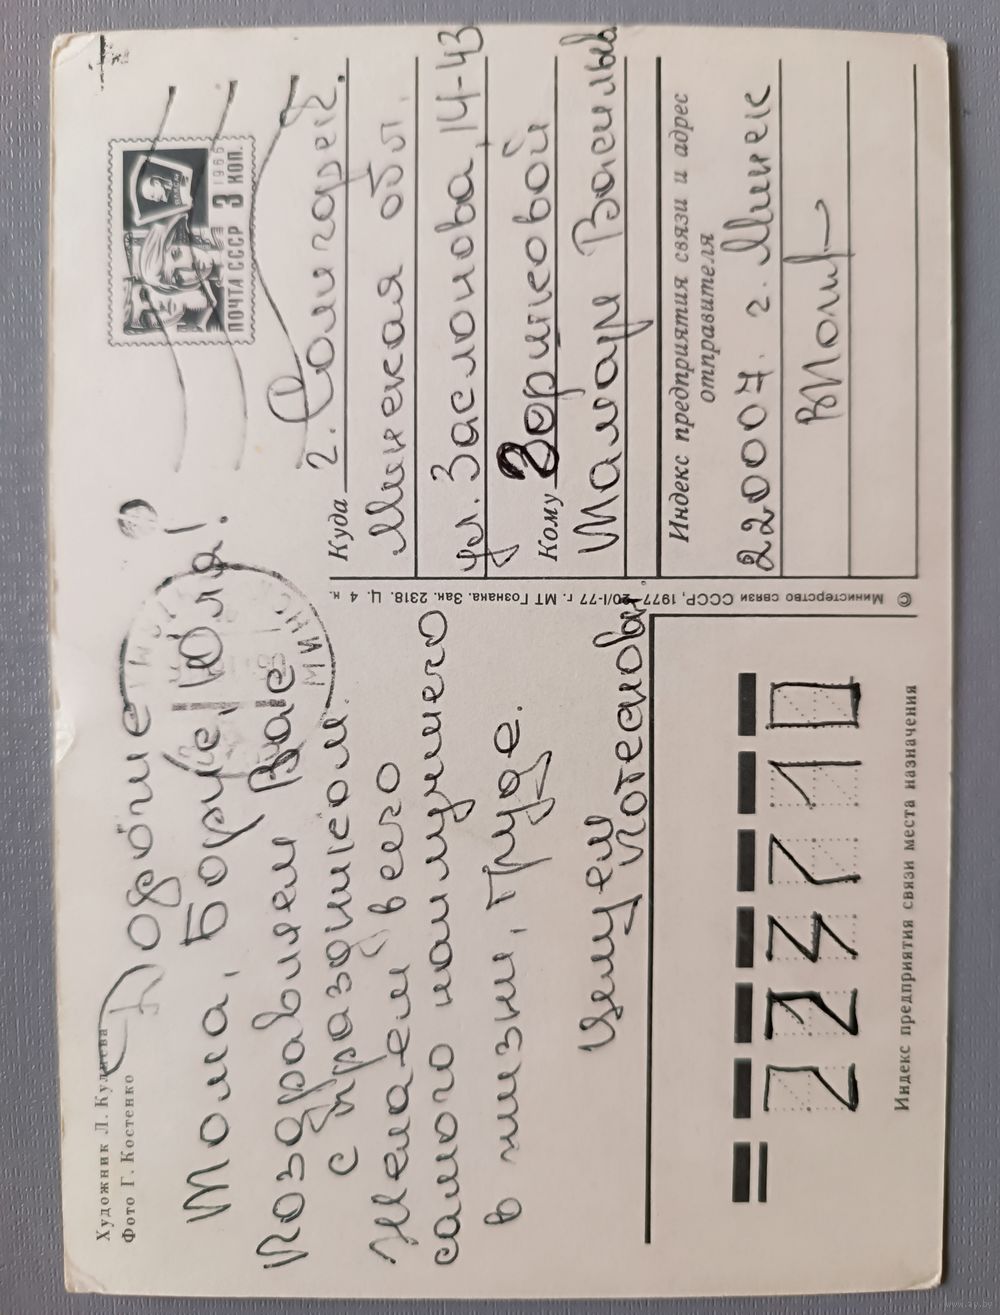 Художник Л. Кулиева
Фото Г. Костенко
Дорогие
Тома, Боря, Юля!
Поздравляем Вас
с праздником.
Желаем всего
самого наилучшего
в жизни, труде.
Целуем
Потесновы
1966
ПОЧТА СССР 3 КОП.
МИНС
Куда г. Солигорск.
Минская обл.
ул. Заслонова, 14-43
Кому Зориковой
Тамаре Василь
Индекс предприятия связи и адрес
отправителя
220007. г. Минск
© Министерство связи СССР, 1977 20/I-77 г. МТ Гознака. Зак. 2318. Ц. 4 к.
223710
Индекс предприятия связи места назначения
www.ay.by